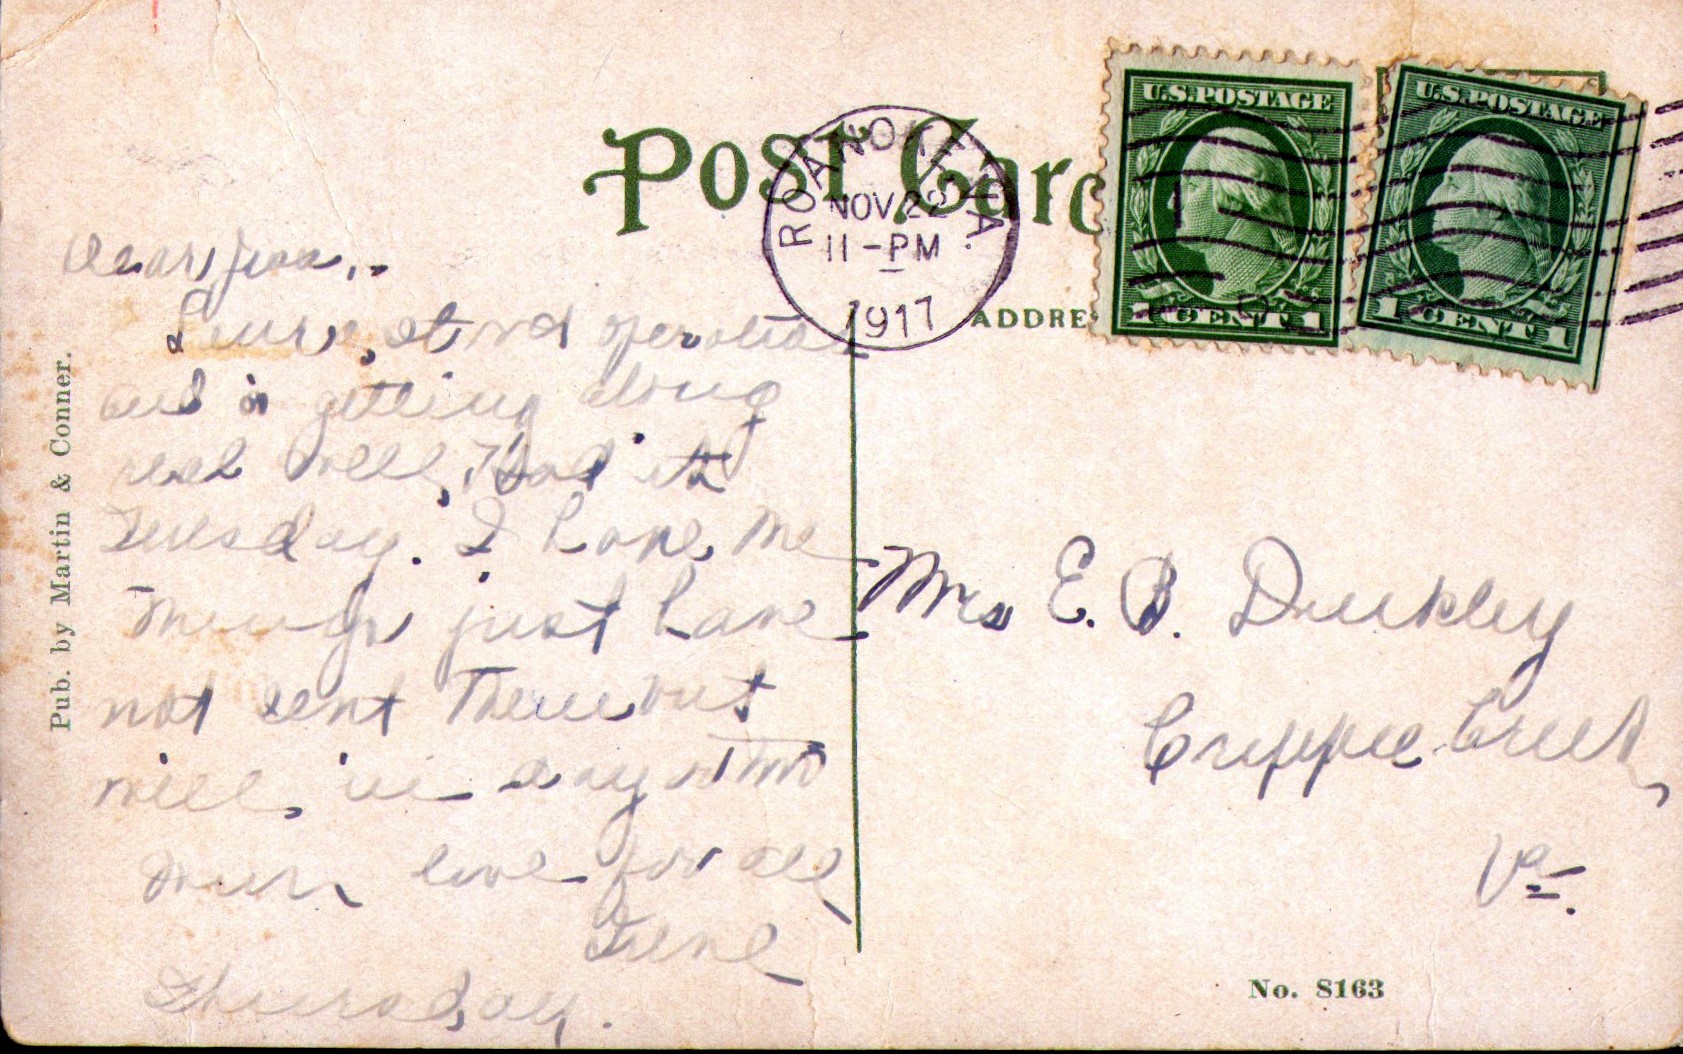 Post Card
ROANOKE, VA.
NOV 22
11-PM
1917
U.S. POSTAGE
1 CENT 1
U.S. POSTAGE
1 CENT 1
ADDRE
Pub. by Martin & Conner.
Dear
stood operation
and is getting along
real well, Had it
Tuesday. I have Mc
just have
not sent them but
will in day or two
love for all
Irene
Thursday.
Mrs E. B. Dunkley
Cripple Creek,
Va.
No. 8163